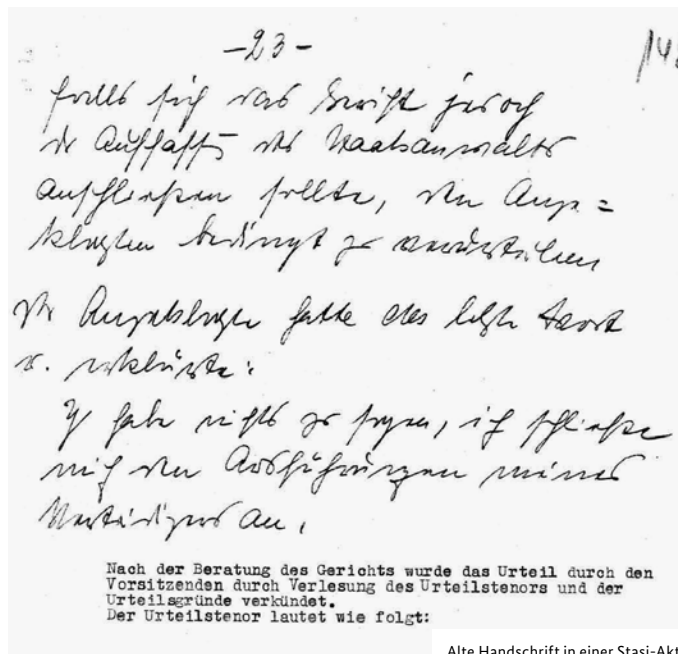 -23-
falls sich das Gericht jedoch
der Auffassg des Staatsanwalts
anschließen sollte, den Ange=
klagten bedingt zu verurteilen
Der Angeklagte hatte das letzte Wort
u. erklärte:
Ich habe nichts zu sagen, ich schließe
mich den Ausführungen meines
Verteidigers an.
Nach der Beratung des Gerichts wurde das Urteil durch den
Vorsitzenden durch Verlesung des Urteilstenors und der
Urteilsgründe verkündet.
Der Urteilstenor lautet wie folgt:
Alte Handschrift in einer Stasi-Akt